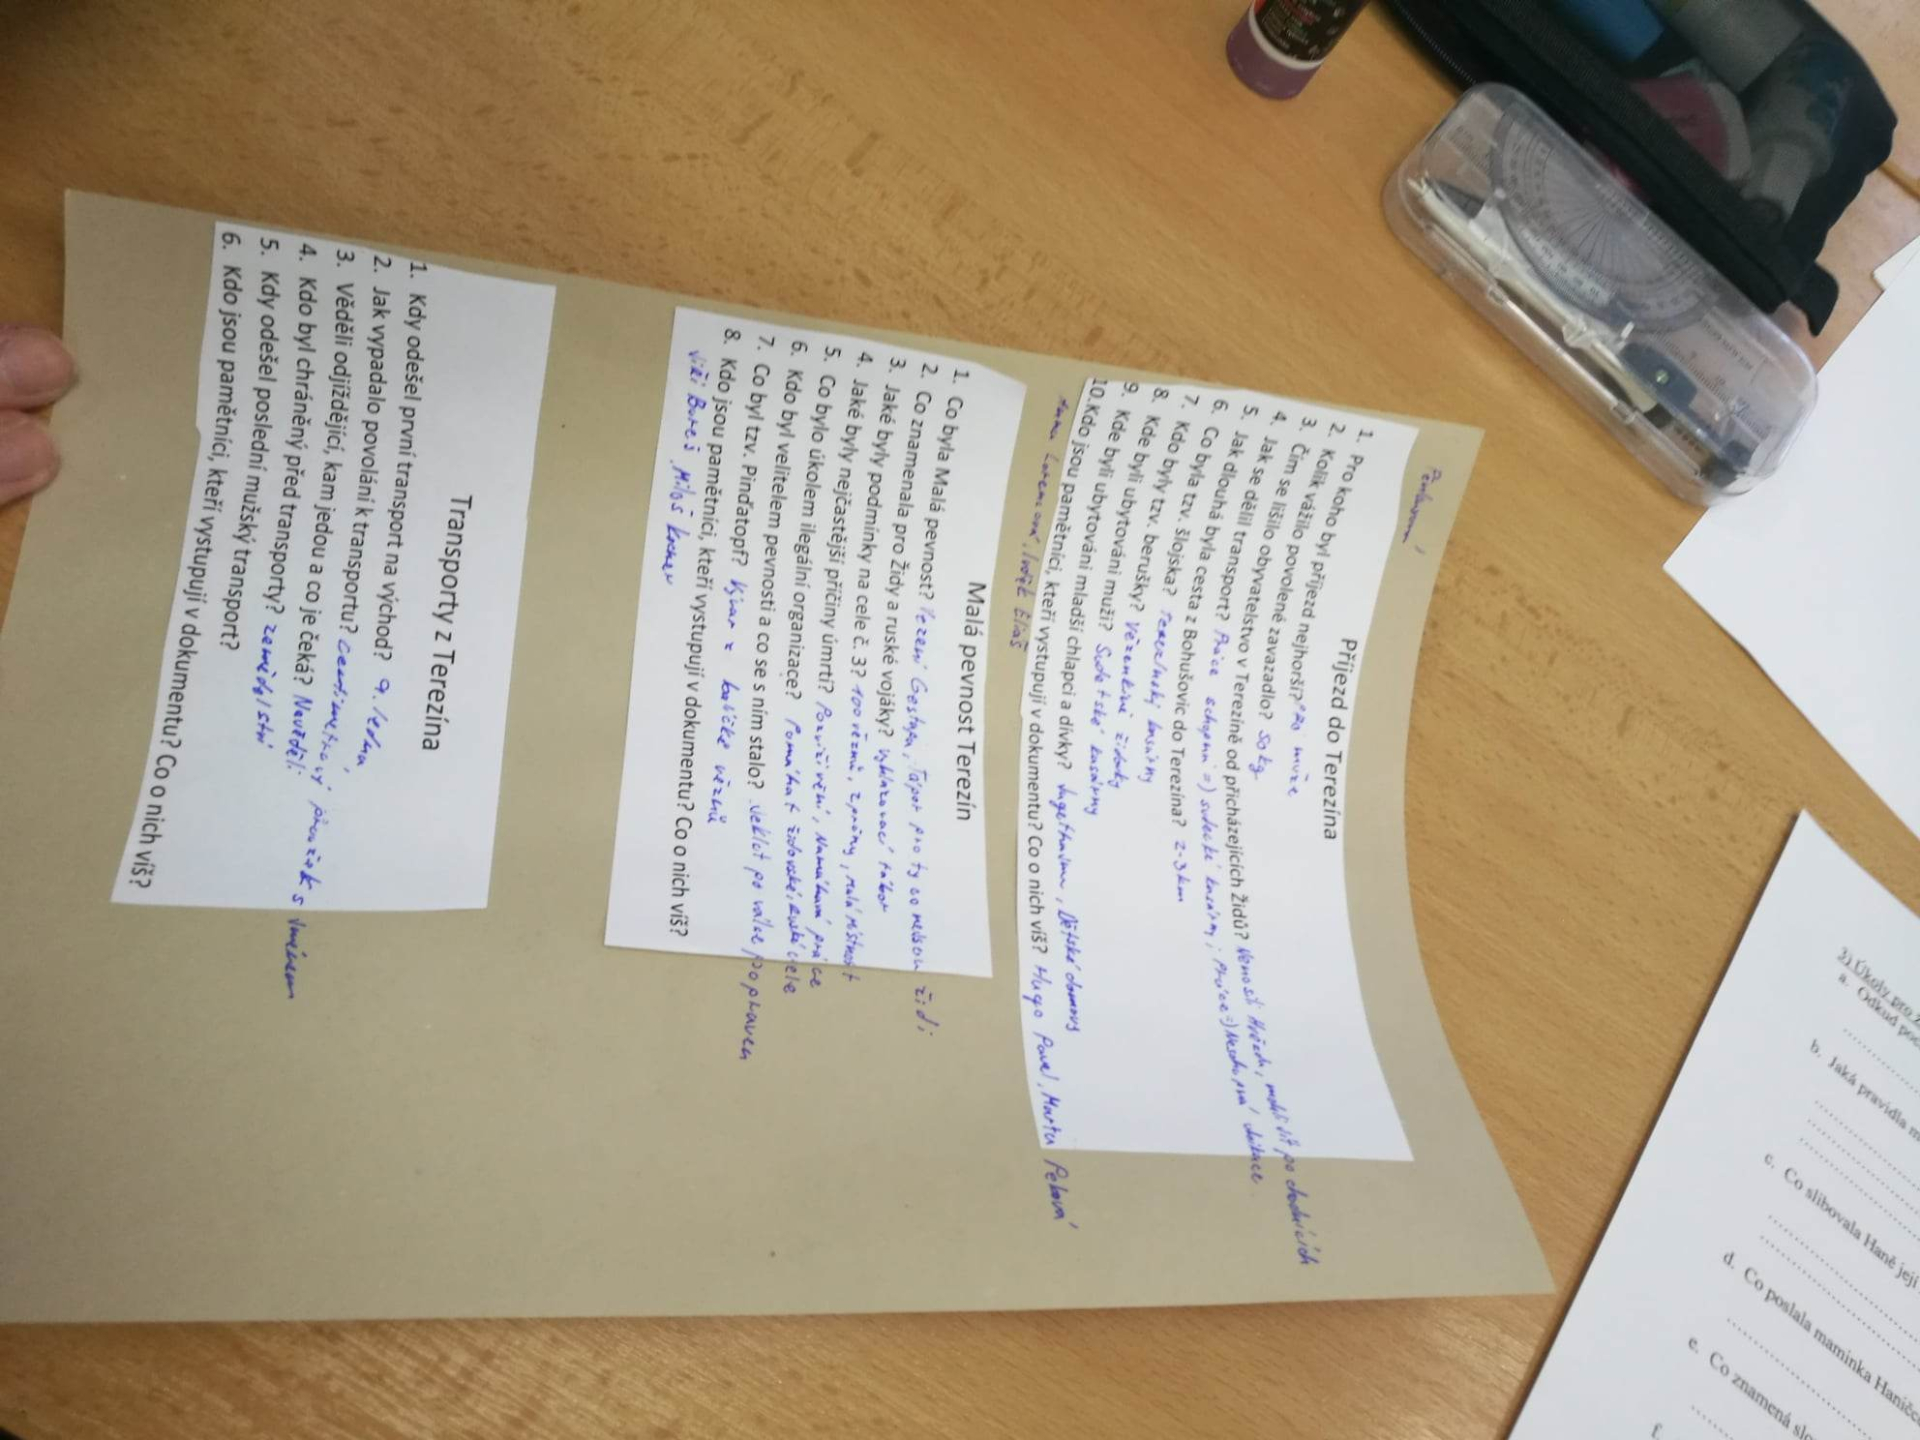 Příjezd do Terezína
1. Pro koho byl příjezd nejhorší? muže
2. Kolik vážilo povolené zavazadlo? 50 kg
3. Čím se lišilo obyvatelstvo v Terezíně od přicházejících Židů? Nenosili Hvězdu, mohli jít po chodnících
4. Jak se dělil transport? Práce schopní => sudetské kasárny, Práce => Neschopní
5. Jak dlouhá byla cesta z Bohušovic do Terezína? 2-3 km
6. Co byla tzv. šlojska? Terezínský kasárny
7. Kdo byly tzv. berušky? Vězeňkyně židovky
8. Kde byli ubytováni muži? Sudetské kasárny
9. Kde byli ubytováni mladší chlapci a dívky? Dětské domovy
10. Kdo jsou pamětníci, kteří vystupují v dokumentu? Co o nich víš? Hugo Pavel, Marta Pelová
Malá pevnost Terezín
1. Co byla Malá pevnost? Vězení Gestapa, Tábor pro ty co nejsou židi
2. Co znamenala pro Židy a ruské vojáky? vyhlazovací tábor
3. Jaké byly podmínky na cele č. 3? 100 vězňů, malá místnost
4. Jaké byly nejčastější příčiny úmrtí? Namáhavá práce
5. Co bylo úkolem ilegální organizace? Pomáhat židovské, ruské cele
6. Kdo byl velitelem pevnosti a co se s ním stalo? Jeklot po válce popraven
7. Co byl tzv. Pinďatopf? vězňů
8. Kdo jsou pamětníci, kteří vystupují v dokumentu? Co o nich víš?
Jiří Bureš, Miloš
Transporty z Terezína
1. Kdy odešel první transport na východ? 9. ledna
2. Jak vypadalo povolání k transportu? Centimetrový proužek s jménem
3. Věděli odjíždějící, kam jedou a co je čeká? Nevěděli
4. Kdo byl chráněný před transporty? zemědělství
5. Kdy odešel poslední mužský transport?
6. Kdo jsou pamětníci, kteří vystupují v dokumentu? Co o nich víš?
a. Odkud
b. Jaká pravidla
c. Co slibovala Haně její
d. Co poslala maminka
e. Co znamená
f.